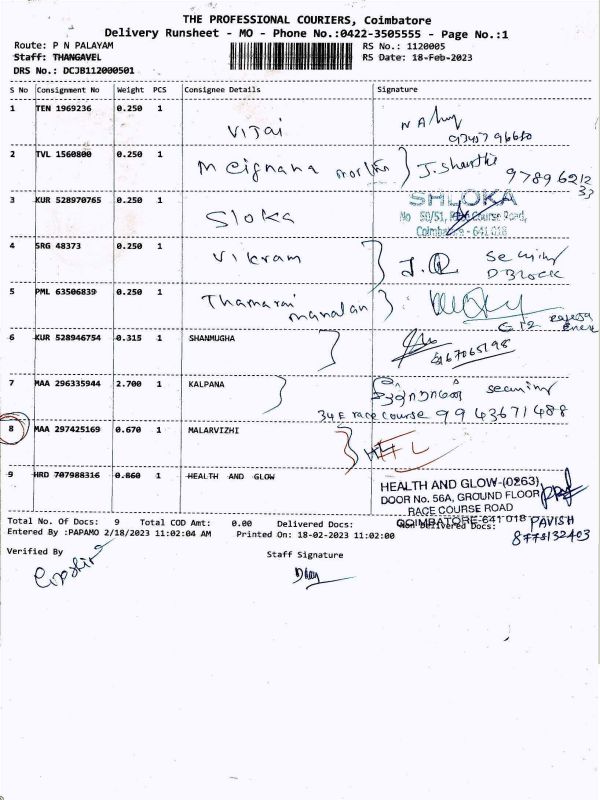 THE PROFESSIONAL COURIERS, Coimbatore
Delivery Runsheet - MO - Phone No.:0422-3505555 - Page No.:1
Route: P N PALAYAM RS No.: 1120005
Staff: THANGAVEL RS Date: 18-Feb-2023
DRS No.: DCJB112000501
S No Consignment No Weight PCS Consignee Details Signature
1 TEN 1969236 0.250 1
Vijai
2 TVL 1560800 0.250 1
J. Shanthi
9789621233
3 KUR 528970765 0.250 1 SHLOKA
Sloka No 50/51, Race Course Road,
Coimbatore - 641 018
4 SRG 48373 0.250 1
Vikram
D Block
5 PML 63506839 0.250 1
Thamarai manalan
G12
6 KUR 528946754 0.315 1 SHANMUGHA
7 MAA 296335944 2.700 1 KALPANA
34 E race course 9943671488
8 MAA 297425169 0.670 1 MALARVIZHI
9 HRD 707988316 0.860 1 HEALTH AND GLOW
HEALTH AND GLOW-(0263)
DOOR No. 56A, GROUND FLOOR
RACE COURSE ROAD
COIMBATORE-641 018
Total No. Of Docs: 9 Total COD Amt: 0.00 Delivered Docs: Non Delivered Docs: PAVISH
Entered By :PAPAMO 2/18/2023 11:02:04 AM Printed On: 18-02-2023 11:02:00 8778132403
Verified By Staff Signature